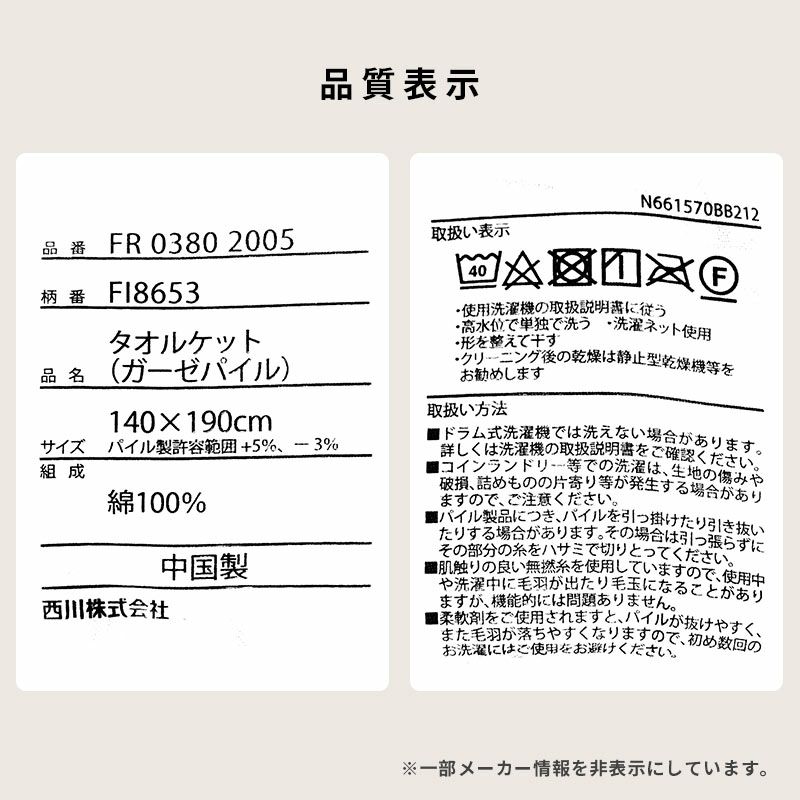 品質表示
品番 FR 0380 2005
柄番 FI8653
品名 タオルケット
（ガーゼパイル）
140×190cm
サイズ パイル製許容範囲 +5%、－3%
組成
綿100%
中国製
西川株式会社
N661570BB212
取扱い表示
40
F
・使用洗濯機の取扱説明書に従う
・高水位で単独で洗う ・洗濯ネット使用
・形を整えて干す
・クリーニング後の乾燥は静止型乾燥機等を
お勧めします
取扱い方法
■ドラム式洗濯機では洗えない場合があります。
詳しくは洗濯機の取扱説明書をご確認ください。
■コインランドリー等での洗濯は、生地の傷みや
破損、詰めものの片寄り等が発生する場合があり
ますので、ご注意ください。
■パイル製品につき、パイルを引っ掛けたり引き抜い
たりする場合があります。その場合は引っ張らずに
その部分の糸をハサミで切りとってください。
■肌触りの良い無撚糸を使用していますので、使用中
や洗濯中に毛羽が出たり毛玉になることがあり
ますが、機能的には問題ありません。
■柔軟剤をご使用されますと、パイルが抜けやすく、
また毛羽が落ちやすくなりますので、初め数回の
お洗濯にはご使用をお避けください。
※一部メーカー情報を非表示にしています。